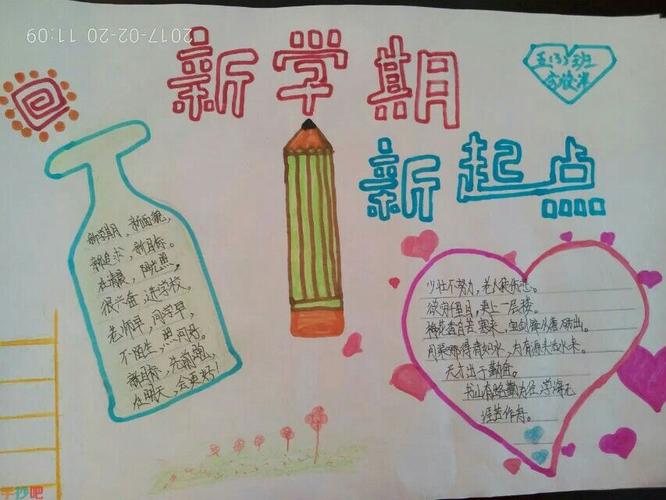 2017-02-20 11:09
新学期
新起点
五(3)班
新学期，新面貌，
新追求，新目标。
在清晨，阳光照，
很兴奋，进学校，
老师早，同学早，
不陌生，照问好。
新目标，先前跑，
在明天，会更好！
少壮不努力，老大徒伤悲。
欲穷千里目，更上一层楼。
梅花香自苦寒来，宝剑锋从磨砺出。
问渠那得清如水，为有源头活水来。
天才出于勤奋。
书山有路勤为径，学海无
涯苦作舟。
手抄吧